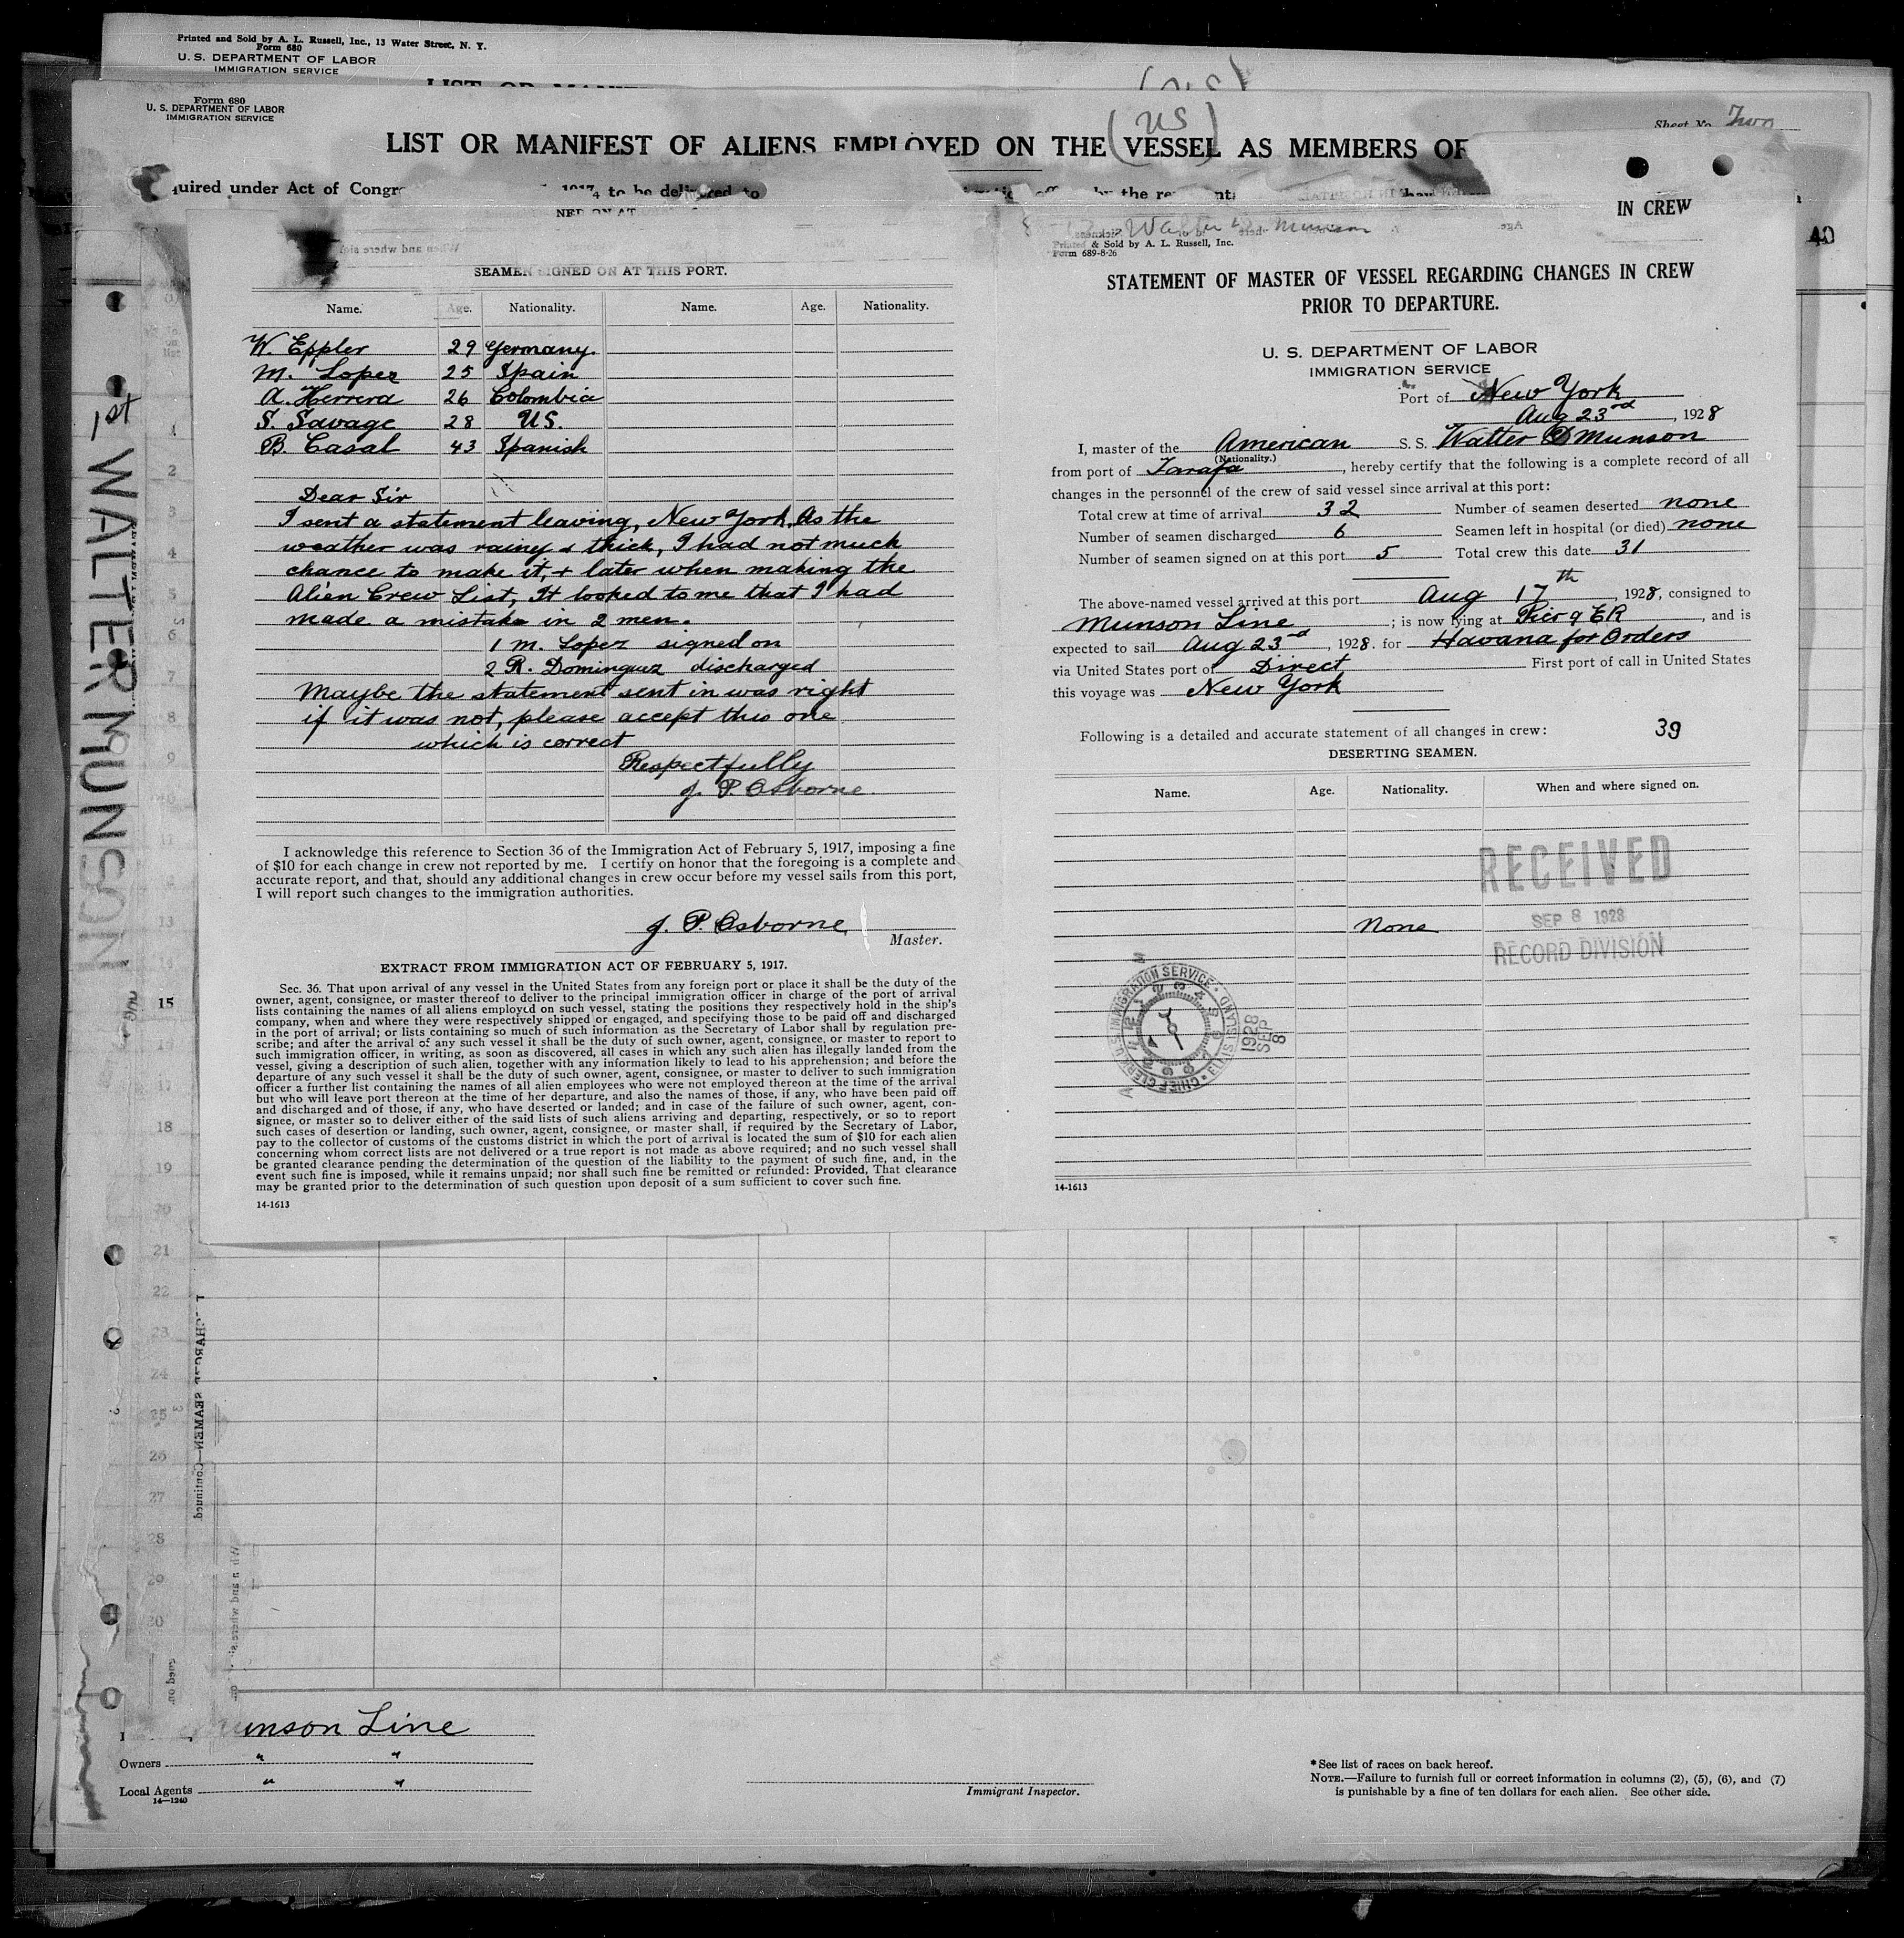 Printed and Sold by A. L. Russell, Inc., 13 Water Street, N. Y.
Form 680
U. S. DEPARTMENT OF LABOR
IMMIGRATION SERVICE
Form 680
U. S. DEPARTMENT OF LABOR
IMMIGRATION SERVICE
(US)
Sheet No. Two
LIST OR MANIFEST OF ALIENS EMPLOYED ON THE VESSEL AS MEMBERS OF
quired under Act of Congr
to be delivered to
IN CREW
40
1st WALTER MUNSON
SEAMEN SIGNED ON AT THIS PORT.
Name. Age. Nationality. Name. Age. Nationality.
W. Eppler 29 Germany.
M. Lopez 25 Spain
A. Herrera 26 Colombia
S. Savage 28 U.S.
B. Casal 43 Spanish
Dear Sir
I sent a statement leaving, New York, As the
weather was rainy & thick, I had not much
chance to make it, & later when making the
Alien Crew List, It looked to me that I had
made a mistake in 2 men.
1 M. Lopez signed on
2 R. Dominguez discharged
Maybe the statement sent in was right
if it was not, please accept this one
which is correct
Respectfully
J. P. Osborne.
I acknowledge this reference to Section 36 of the Immigration Act of February 5, 1917, imposing a fine
of $10 for each change in crew not reported by me. I certify on honor that the foregoing is a complete and
accurate report, and that, should any additional changes in crew occur before my vessel sails from this port,
I will report such changes to the immigration authorities.
J. P. Osborne,
Master.
EXTRACT FROM IMMIGRATION ACT OF FEBRUARY 5, 1917.
Sec. 36. That upon arrival of any vessel in the United States from any foreign port or place it shall be the duty of the
owner, agent, consignee, or master thereof to deliver to the principal immigration officer in charge of the port of arrival
lists containing the names of all aliens employed on such vessel, stating the positions they respectively hold in the ship's
company, when and where they were respectively shipped or engaged, and specifying those to be paid off and discharged
in the port of arrival; or lists containing so much of such information as the Secretary of Labor shall by regulation pre-
scribe; and after the arrival of any such vessel it shall be the duty of such owner, agent, consignee, or master to report to
such immigration officer, in writing, as soon as discovered, all cases in which any such alien has illegally landed from the
vessel, giving a description of such alien, together with any information likely to lead to his apprehension; and before the
departure of any such vessel it shall be the duty of such owner, agent, consignee, or master to deliver to such immigration
officer a further list containing the names of all alien employees who were not employed thereon at the time of the arrival
but who will leave port thereon at the time of her departure, and also the names of those, if any, who have been paid off
and discharged and of those, if any, who have deserted or landed; and in case of the failure of such owner, agent, con-
signee, or master so to deliver either of the said lists of such aliens arriving and departing, respectively, or so to report
such cases of desertion or landing, such owner, agent, consignee, or master shall, if required by the Secretary of Labor,
pay to the collector of customs of the customs district in which the port of arrival is located the sum of $10 for each alien
concerning whom correct lists are not delivered or a true report is not made as above required; and no such vessel shall
be granted clearance pending the determination of the question of the liability to the payment of such fine, and, in the
event such fine is imposed, while it remains unpaid; nor shall such fine be remitted or refunded: Provided, That clearance
may be granted prior to the determination of such question upon deposit of a sum sufficient to cover such fine.
14-1613
Walter D Munson
Printed & Sold by A. L. Russell, Inc.
Form 689-8-26
STATEMENT OF MASTER OF VESSEL REGARDING CHANGES IN CREW
PRIOR TO DEPARTURE.
U. S. DEPARTMENT OF LABOR
IMMIGRATION SERVICE
Port of New York
Aug 23rd, 1928
I, master of the American S. S. Walter D Munson
(Nationality.)
from port of Tarafa, hereby certify that the following is a complete record of all
changes in the personnel of the crew of said vessel since arrival at this port:
Total crew at time of arrival 32 Number of seamen deserted none
Number of seamen discharged 6 Seamen left in hospital (or died) none
Number of seamen signed on at this port 5 Total crew this date 31
The above-named vessel arrived at this port Aug 17th, 1928, consigned to
Munson Line; is now lying at Pier 9 ER, and is
expected to sail Aug 23rd, 1928. for Havana for Orders
via United States port of Direct First port of call in United States
this voyage was New York
Following is a detailed and accurate statement of all changes in crew: 39
DESERTING SEAMEN.
Name. Age. Nationality. When and where signed on.
RECEIVED
SEP 8 1928
RECORD DIVISION
None
CHIEF CLERK U. S. IMMIGRATION SERVICE ELLIS ISLAND
1928 SEP 8
14-1613
15
18
19
20
21
22
23
24
25
26
27
28
29
30
CHARGED SEAMEN—Continued
unson Line
Owners " "
Local Agents " "
14—1240
Immigrant Inspector.
*See list of races on back hereof.
NOTE.—Failure to furnish full or correct information in columns (2), (5), (6), and (7)
is punishable by a fine of ten dollars for each alien. See other side.